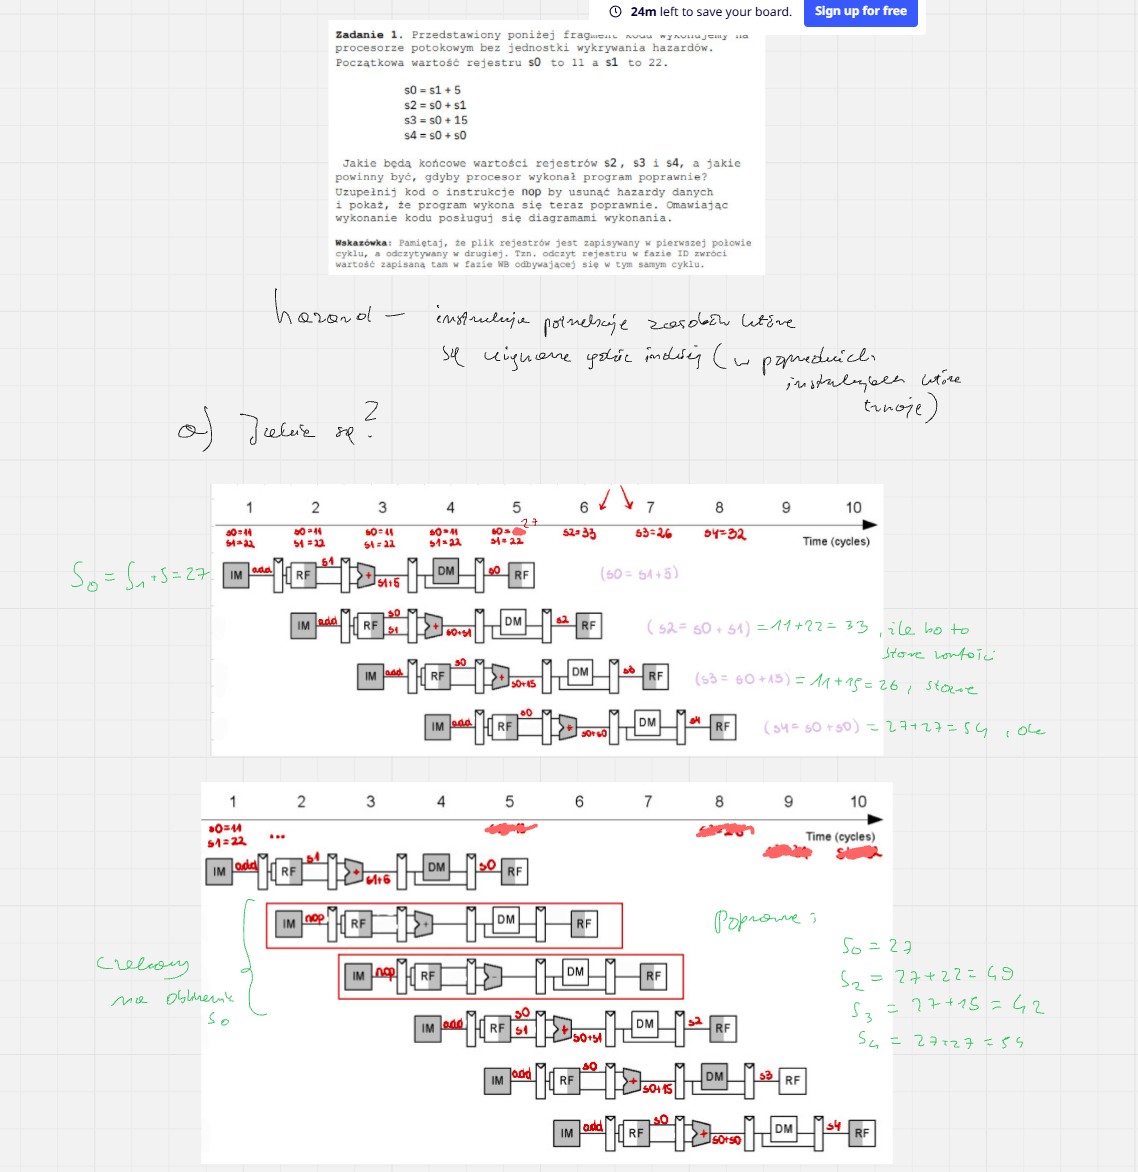 24m left to save your board.
Sign up for free
Zadanie 1. Przedstawiony poniżej fragment kodu wykonujemy na
procesorze potokowym bez jednostki wykrywania hazardów.
Początkowa wartość rejestru s0 to 11 a s1 to 22.
s0 = s1 + 5
s2 = s0 + s1
s3 = s0 + 15
s4 = s0 + s0
Jakie będą końcowe wartości rejestrów s2, s3 i s4, a jakie
powinny być, gdyby procesor wykonał program poprawnie?
Uzupełnij kod o instrukcje nop by usunąć hazardy danych
i pokaż, że program wykona się teraz poprawnie. Omawiając
wykonanie kodu posługuj się diagramami wykonania.
Wskazówka: Pamiętaj, że plik rejestrów jest zapisywany w pierwszej połowie
cyklu, a odczytywany w drugiej. Tzn. odczyt rejestru w fazie ID zwróci
wartość zapisaną tam w fazie WB odbywającej się w tym samym cyklu.
hazard — instrukcja potrzebuje zasobów które
są (w poprzednich
instrukcjach które
trwają)
a) Jakie są?
1 2 3 4 5 6 7 8 9 10
s0=11 s0=11 s0=11 s0=11 s0= 27 s2=33 s3=26 s4=32
s1=22 s1=22 s1=22 s1=22 s1=22
Time (cycles)
S0 = S1+5=27
IM add RF s1 + s1+5 DM s0 RF (s0 = s1+5)
IM add RF s0 s1 + s0+s1 DM s2 RF (s2 = s0 + s1) = 11+22 = 33, źle bo to
stare wartości
IM add RF s0 + s0+15 DM s3 RF (s3 = s0 +15) = 11+15 = 26, stare
IM add RF s0 + s0+s0 DM s4 RF (s4 = s0 +s0) = 27+27 = 54, ok
1 2 3 4 5 6 7 8 9 10
s0=11
s1=22 ...
Time (cycles)
IM add RF s1 + s1+5 DM s0 RF
IM nop RF + DM RF
IM nop RF - DM RF
Czekamy
na
s0
IM add RF s0 s1 + s0+s1 DM s2 RF
IM add RF s0 + s0+15 DM s3 RF
IM add RF s0 + s0+s0 DM s4 RF
Poprawne:
S0 = 27
S2 = 27+22 = 49
S3 = 27+15 = 42
S4 = 27+27 = 54